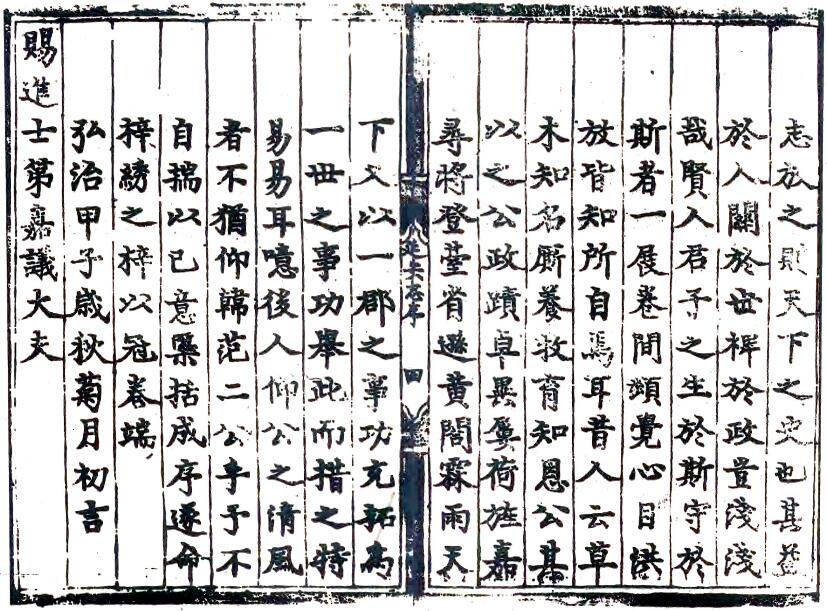 志放之則天下之史也其益
於人關於世裨於政豈淺淺
哉賢人君子之生於斯守於
斯者一展卷間頻覺心目洪
放皆知所自焉耳昔人云草
木知名厮養牧育知恩公其
以之公政蹟卓異屢荷旌嘉
尋將登臺省遜黄閣霖雨天
延安志序 四
下又以一郡之事功充拓為
一世之事功舉此而措之特
易易耳噫後人仰公之清風
者不猶仰韓范二公乎予不
自揣以已意檃括成序遂命
梓綉之梓以冠卷端
弘治甲子歲秋菊月初吉
賜進士第嘉議大夫